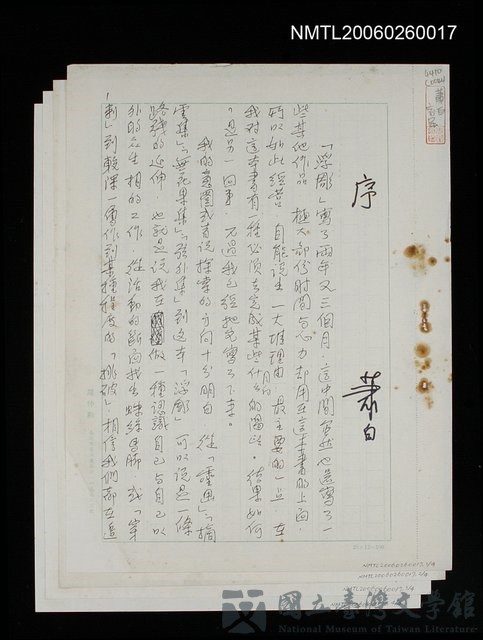 NMTL20060260017
序
蕭白
「浮彫」寫了兩年又三個月,這中間當然也還寫了一
些其他作品,極大部份時間與心力却用在這本書的上面,
所以如此經營,自能說出一大堆理由,最主要的一点,在
我對這本書有一種必須去完成某些什麼的過步。結果如何
,是另一回事,不過我已經把它寫了下來。
我的意圖或者說探索的方向十分明白,從「靈畫」「摘
雲集」「無花果集」「弦外集」到這本「浮彫」可以說是一條
路線的延伸,也就是說我在做一種認識自己與自己以
外的眾生相的工作,從活動的斷面找出蛛絲馬脚,或「穿
刺」到較深一層作到某種程度的「挑破」相信我們都在追
國立臺灣文學館
National Museum of Taiwan Literature